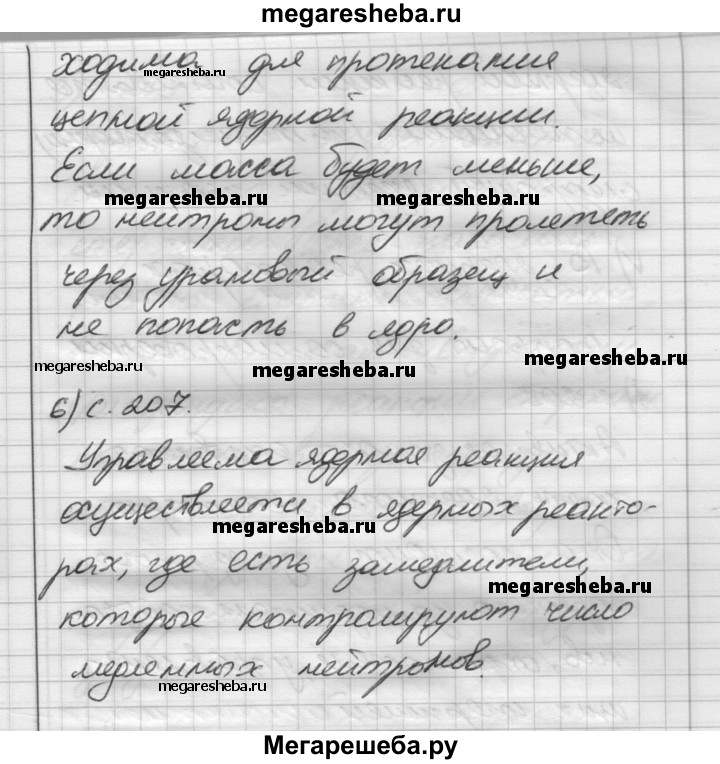 megaresheba.ru
ходима для протекания
megaresheba.ru
цепной ядерной реакции.
Если масса будет меньше,
megaresheba.ru megaresheba.ru
то нейтроны могут пролететь
через урановый образец и
не попасть в ядро.
megaresheba.ru megaresheba.ru megaresheba.ru
6) с. 207.
Управлеема ядерная реакция
осуществляется в ядерных реакто-
megaresheba.ru
рах, где есть замедлители,
megaresheba.ru
которые контролируют число
медленных нейтронов.
megaresheba.ru
Мегарешеба.ру